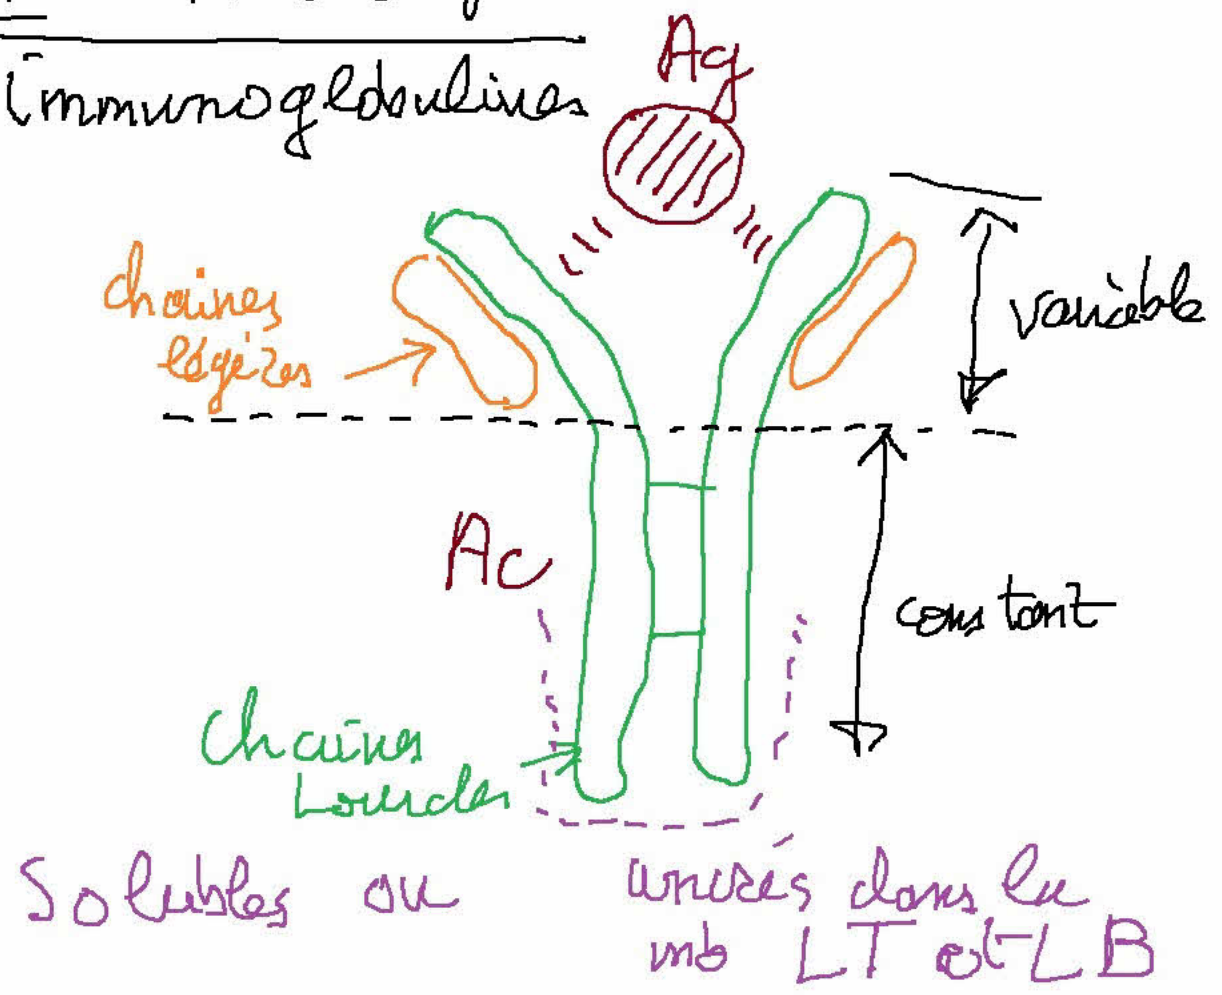 Immunoglobulines
Ag
chaines
légères
variable
Ac
constant
Chaines
Lourdes
Solubles ou
ancrés dans la
mb LT et LB